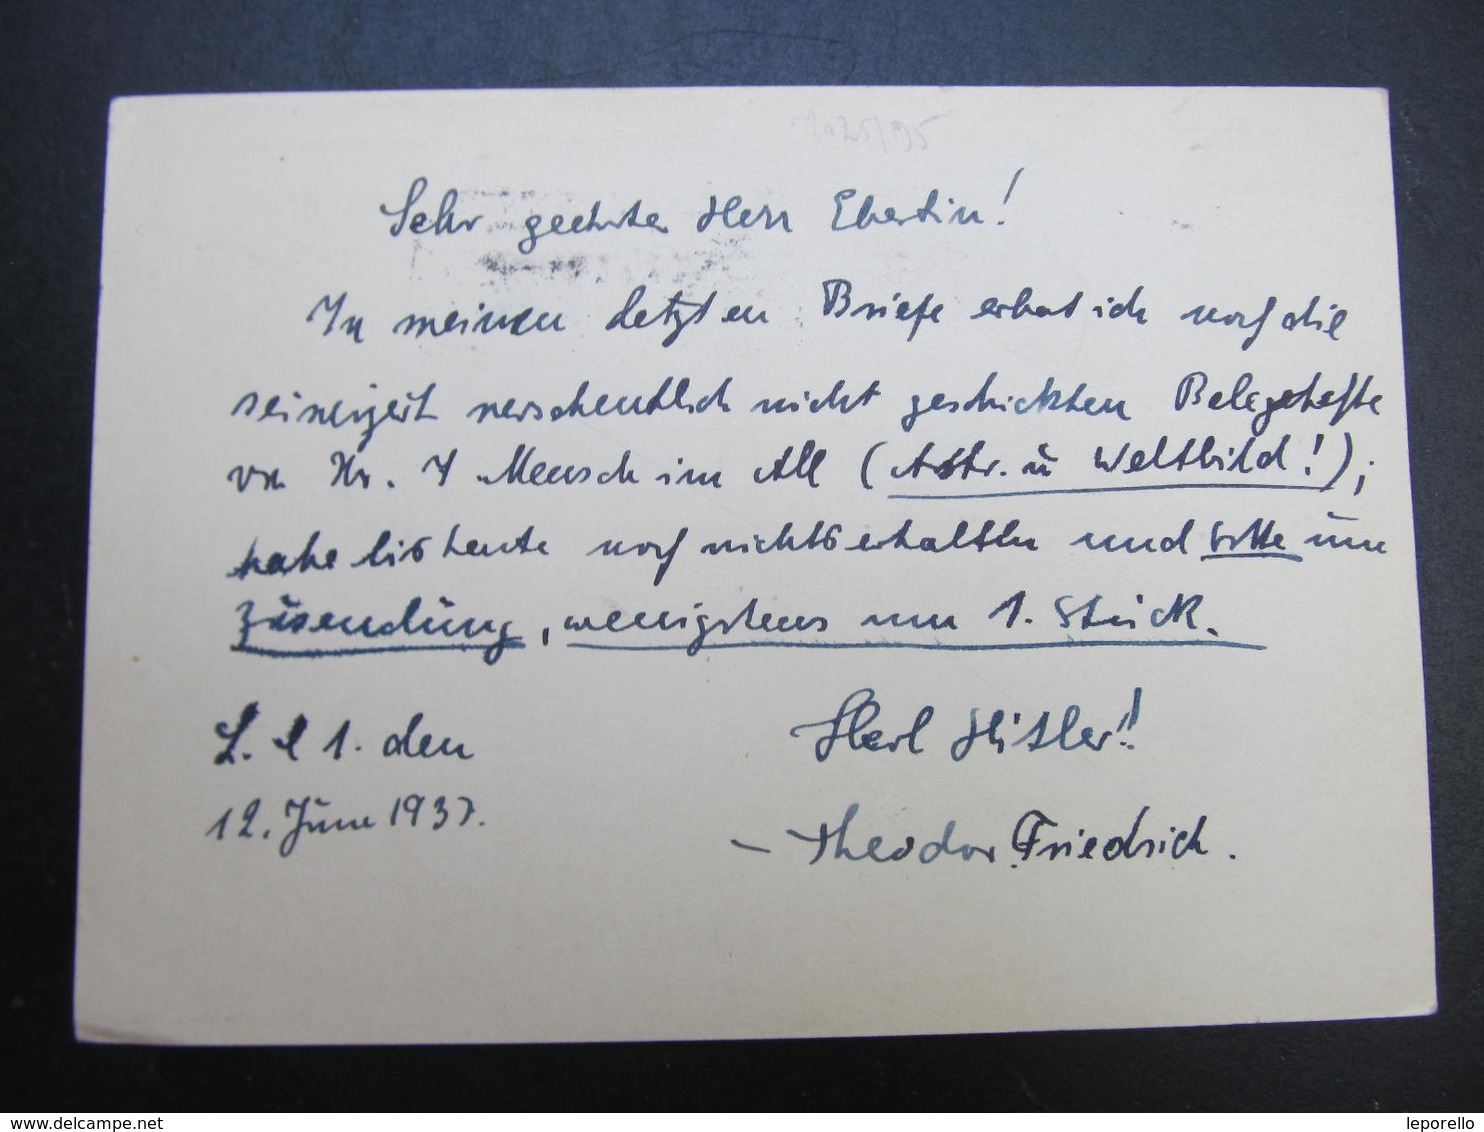 Sehr geehrter Herr Ebertin!
In meinem letzten Briefe erbat ich noch die
seinerzeit versehentlich nicht geschickten Belegehefte
von Nr. 7 Mensch im All (Astr. u Weltbild!);
habe bis heute noch nichts erhalten und bitte um
Zusendung, wenigstens um 1. Stück.
L. 1. den
Heil Hitler!!
12. Juni 1937.
– Theodor Friedrich.
leporello